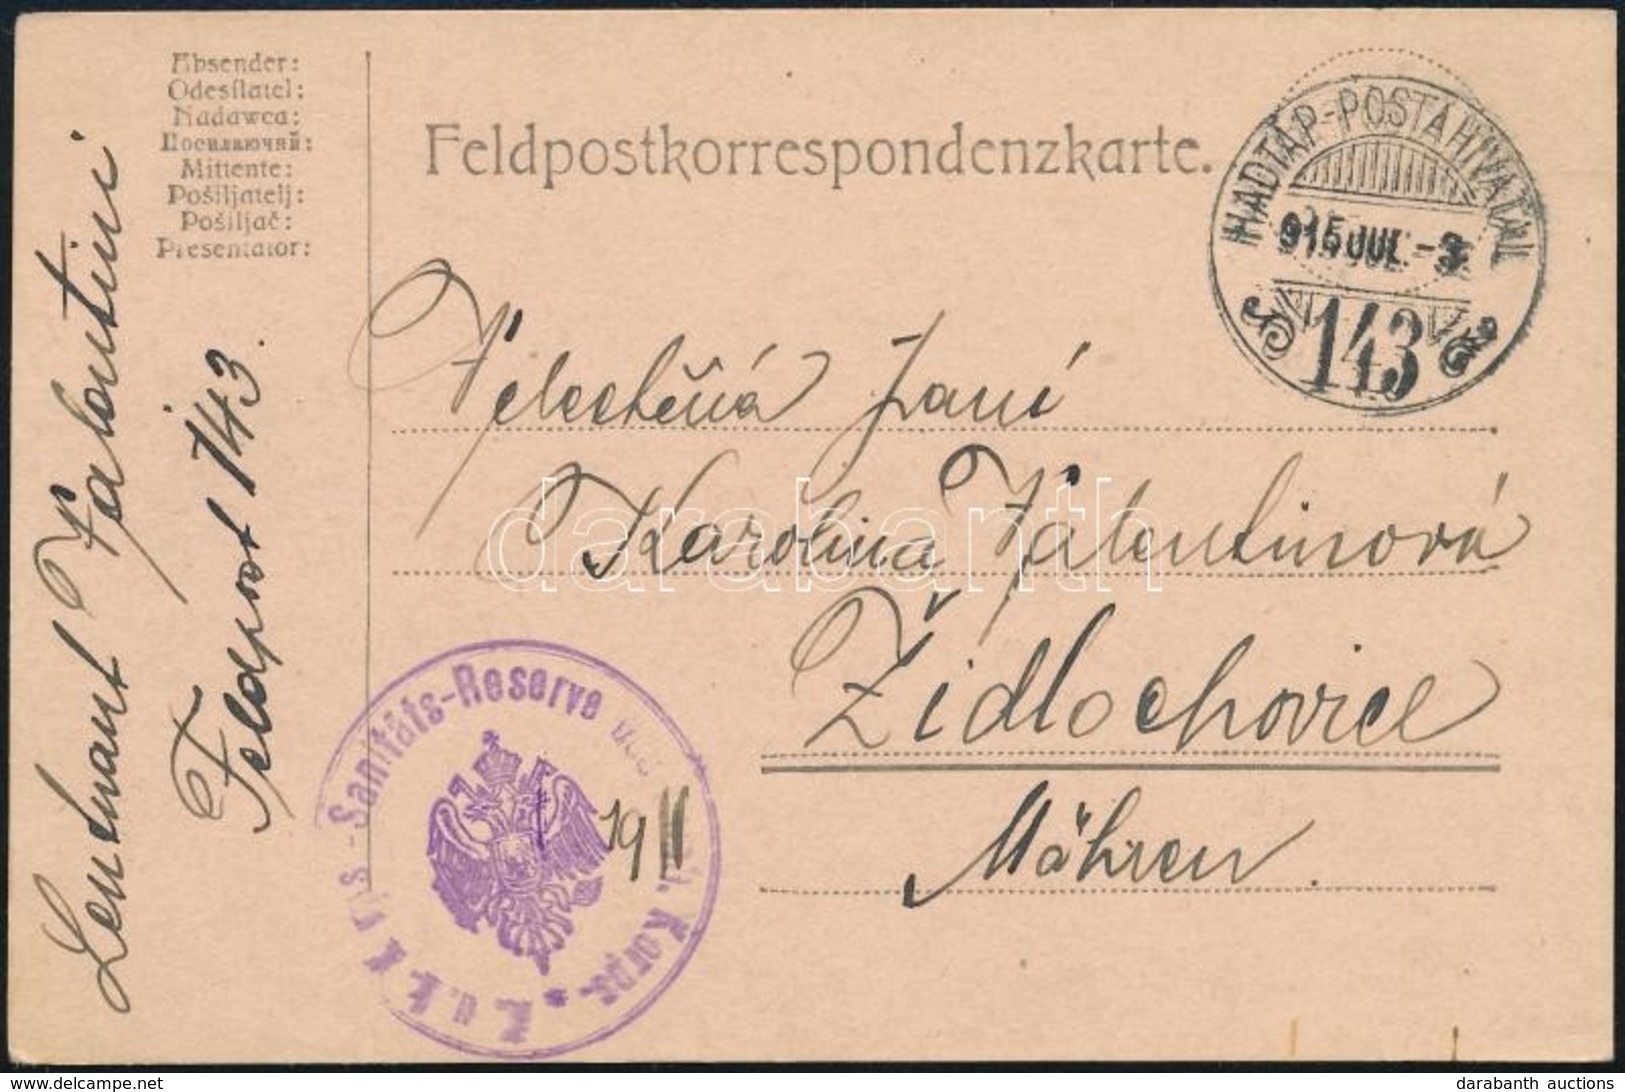 Absender:
Odesílatel:
Nadawca:
Посилаючий:
Mittente:
Pošiljatelj:
Pošiljač:
Presentator:
Feldpostkorrespondenzkarte.
HADTÁP-POSTAHIVATAL
915 JUL.-3
143
Velectěná paní
Karolina Valentinová
Židlochovice
Mähren.
Leutnant Valentini
Feldpost 143.
K. u. k. Vis.-Sanitäts-Reserve des Korps.
19
darabanth
darabanth auctions